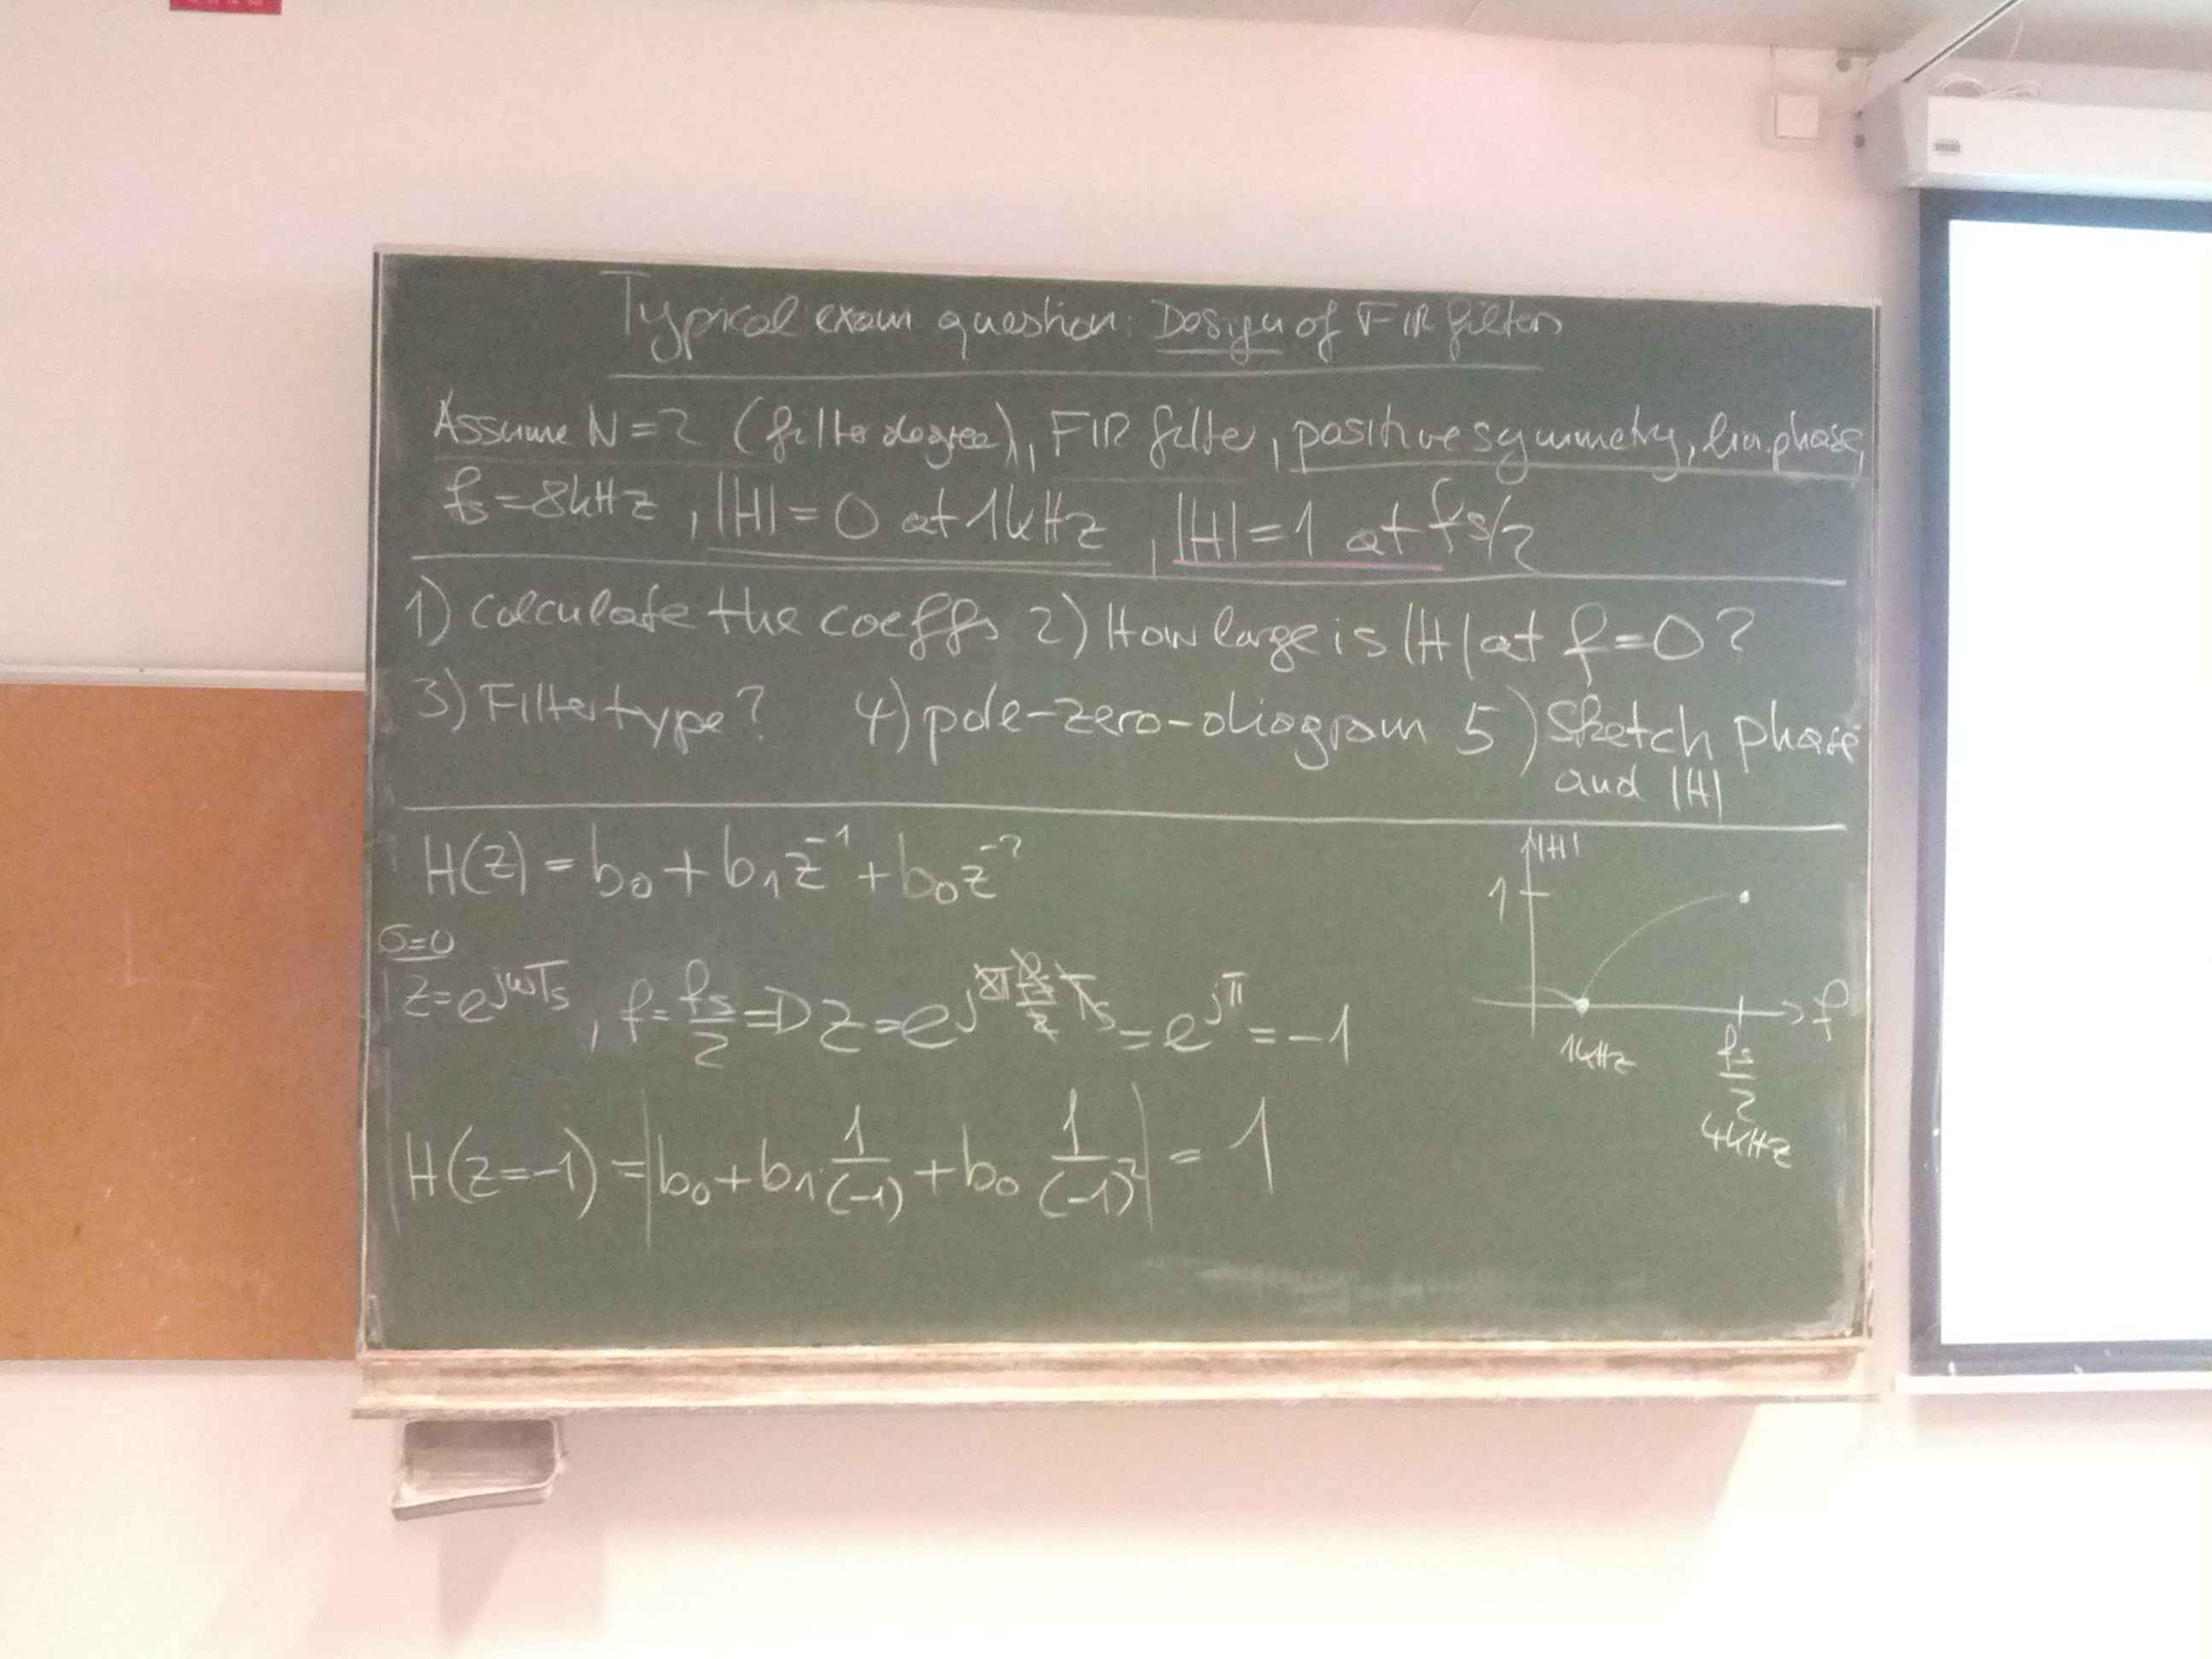 Typical exam question: Design of FIR filters
Assume N=2 (filter degree), FIR filter, positive symmetry, lin. phase,
fs=8kHz, |H|=0 at 1kHz, |H|=1 at fs/2
1) Calculate the coeffs 2) How large is |H| at f=0?
3) Filtertype? 4) pole-zero-diagram 5) Sketch phase
and |H|
H(z) = b₀ + b₁z⁻¹ + b₀z⁻²
σ=0
z=e^{jωTs}, f=fs/2 => z=e^{j2π fs/2 Ts} = e^{jπ} = -1
|H(z=-1)| = |b₀ + b₁ 1/(-1) + b₀ 1/(-1)²| = 1
|H|
1
f
1kHz
fs/2
4kHz